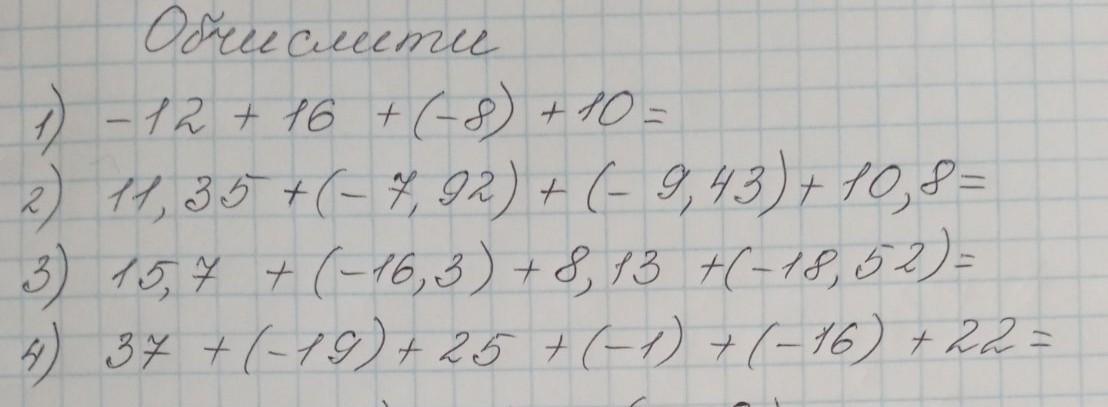 Обчислити
1) -12 + 16 + (-8) + 10 =
2) 11,35 + (-7,92) + (- 9,43) + 10,8 =
3) 15,7 + (-16,3) + 8,13 + (-18,52) =
4) 37 + (-19) + 25 + (-1) + (-16) + 22 =